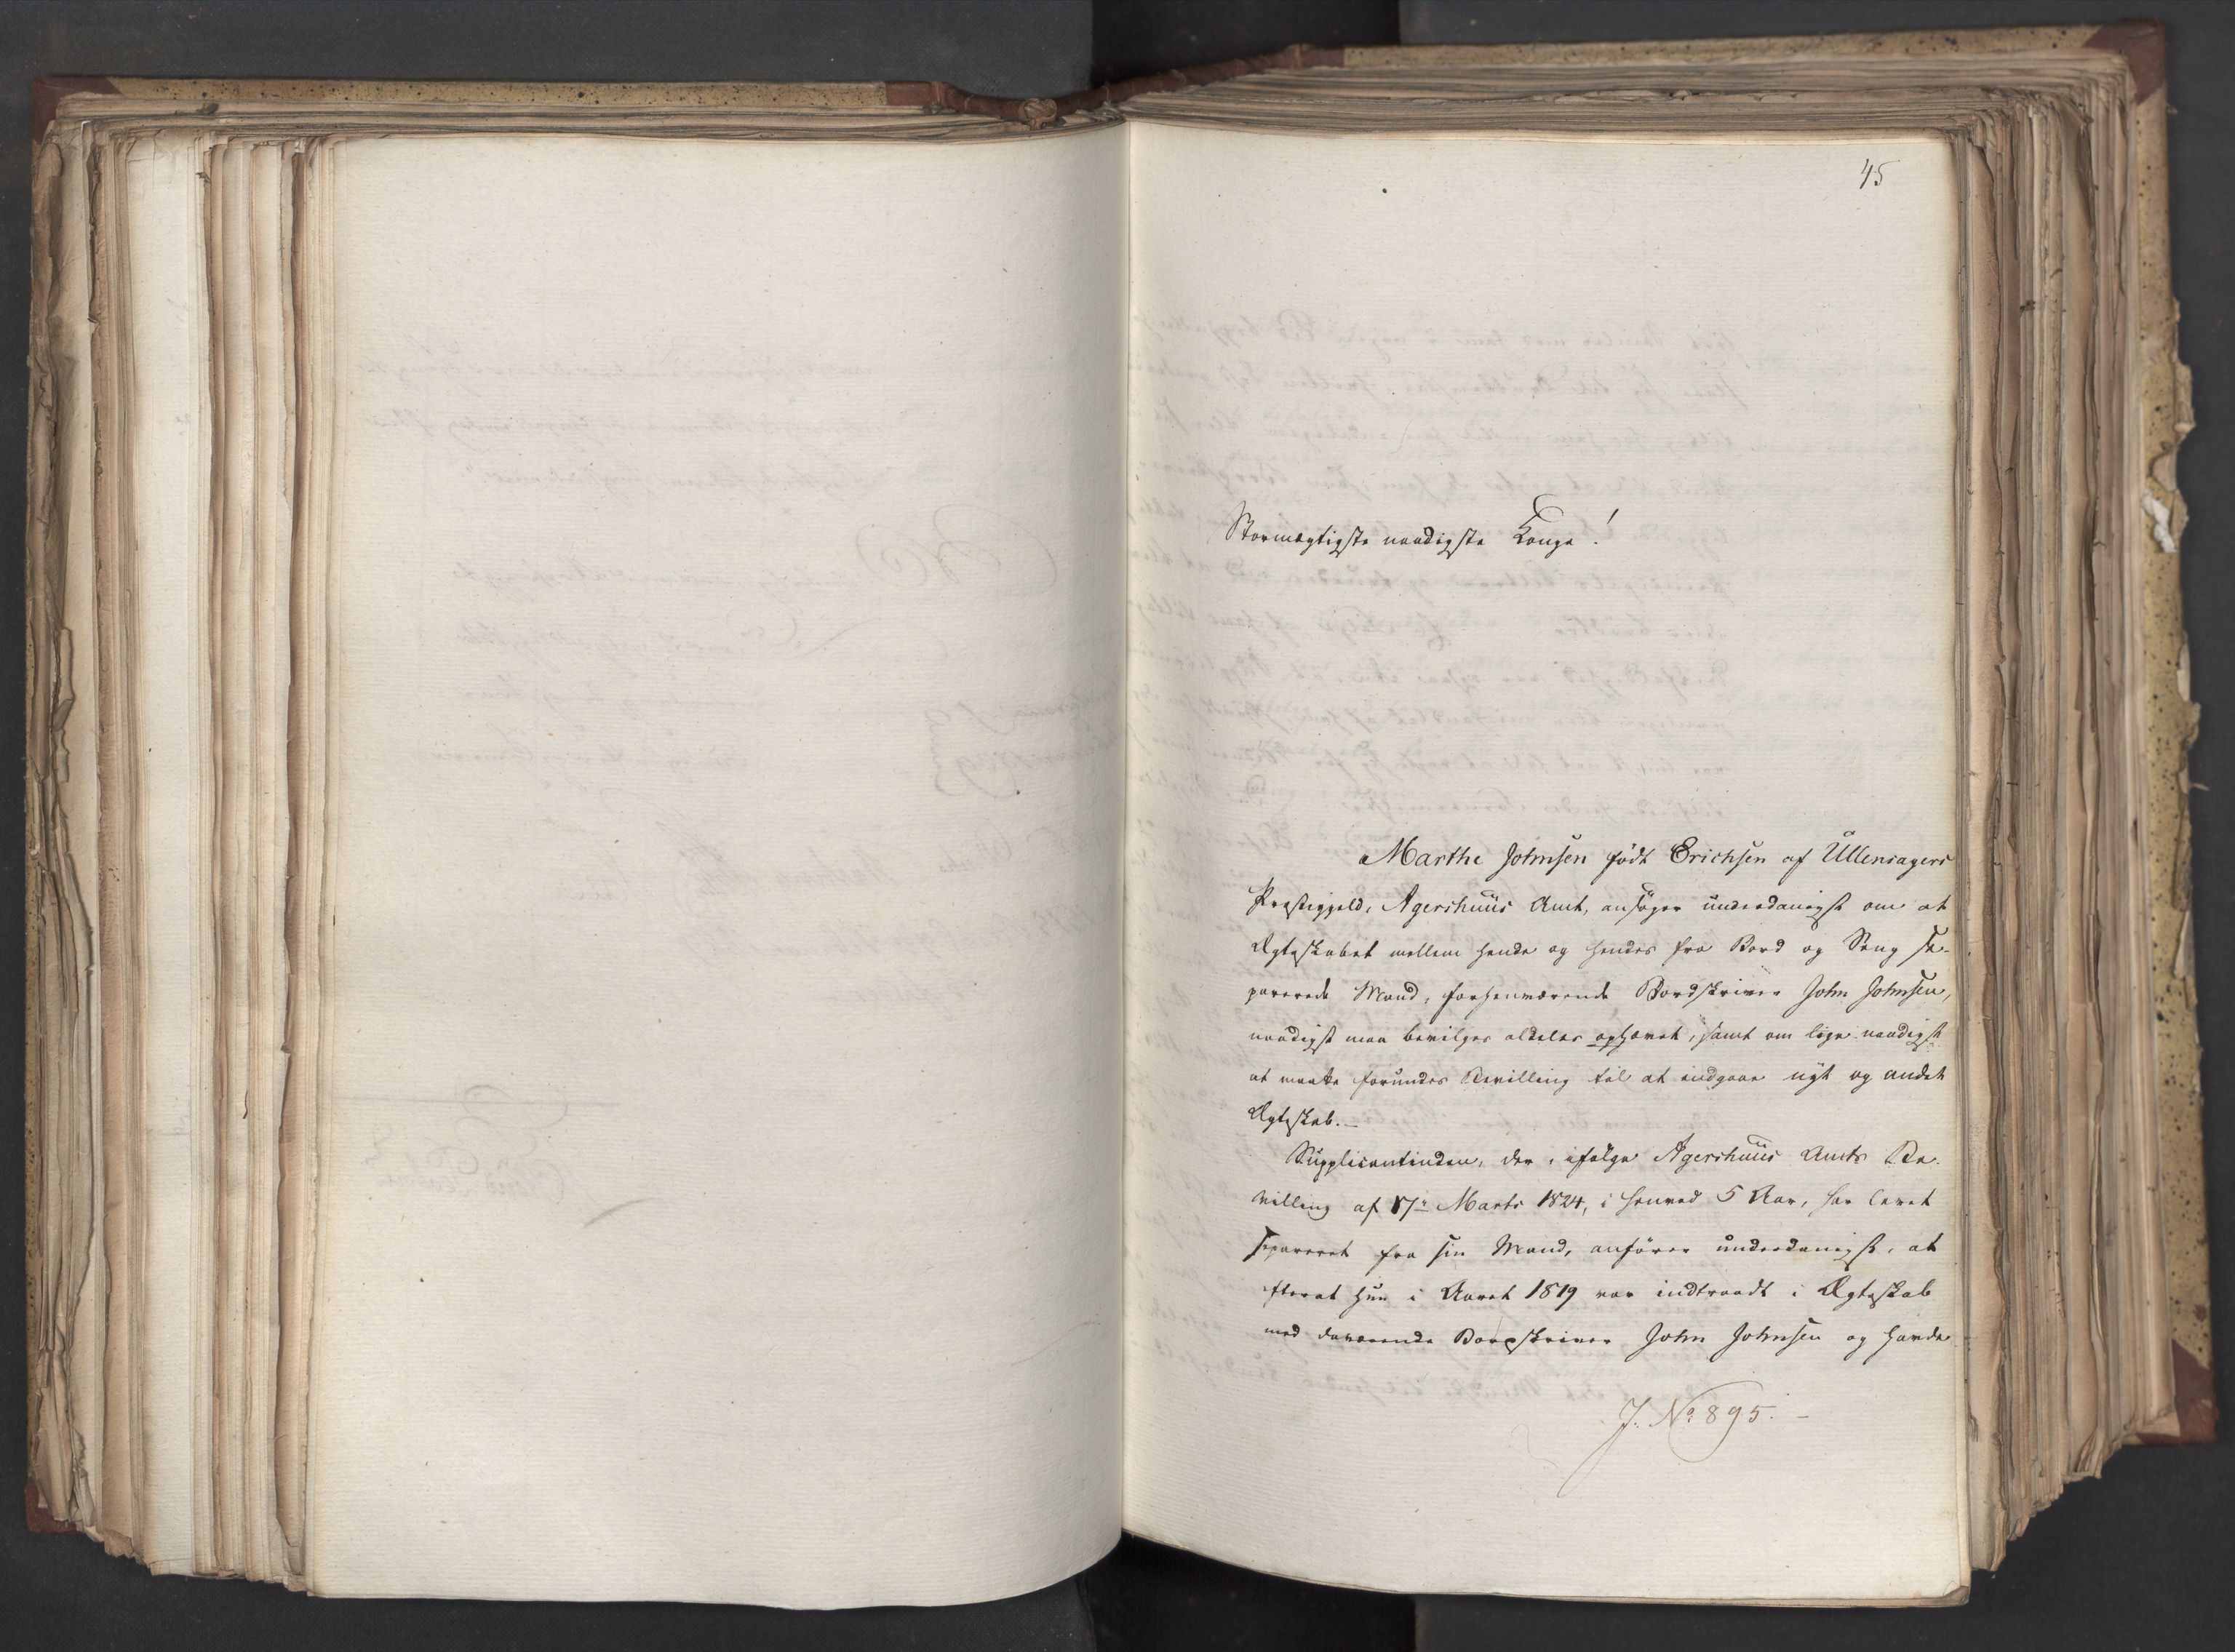 45
Stormægtigste naadigste Konge!
Marthe Johnsen født Erichsen af Ullensagers
Præstegjeld, Agershuus Amt, ansøger underdanigst om at
Ægteskabet mellem hende og hendes fra Bord og Seng se-
parerede Mand, forhenværende Bordskriver John Johnsen,
naadigst maa bevilges aldeles ophævet, samt om lige naadigst
at maatte forundes Bevilling til at indgaae nyt og andet
Ægteskab.-
Supplicantinden, der, ifølge Agershuus Amts Be-
villing af 17de Marts 1824, i henved 5 Aar, har levet
separeret fra sin Mand, anfører underdanigst, at
efterat hun i Aaret 1819 var indtraadt i Ægteskab
med daværende John Johnsen og havde
J. No. 895.-